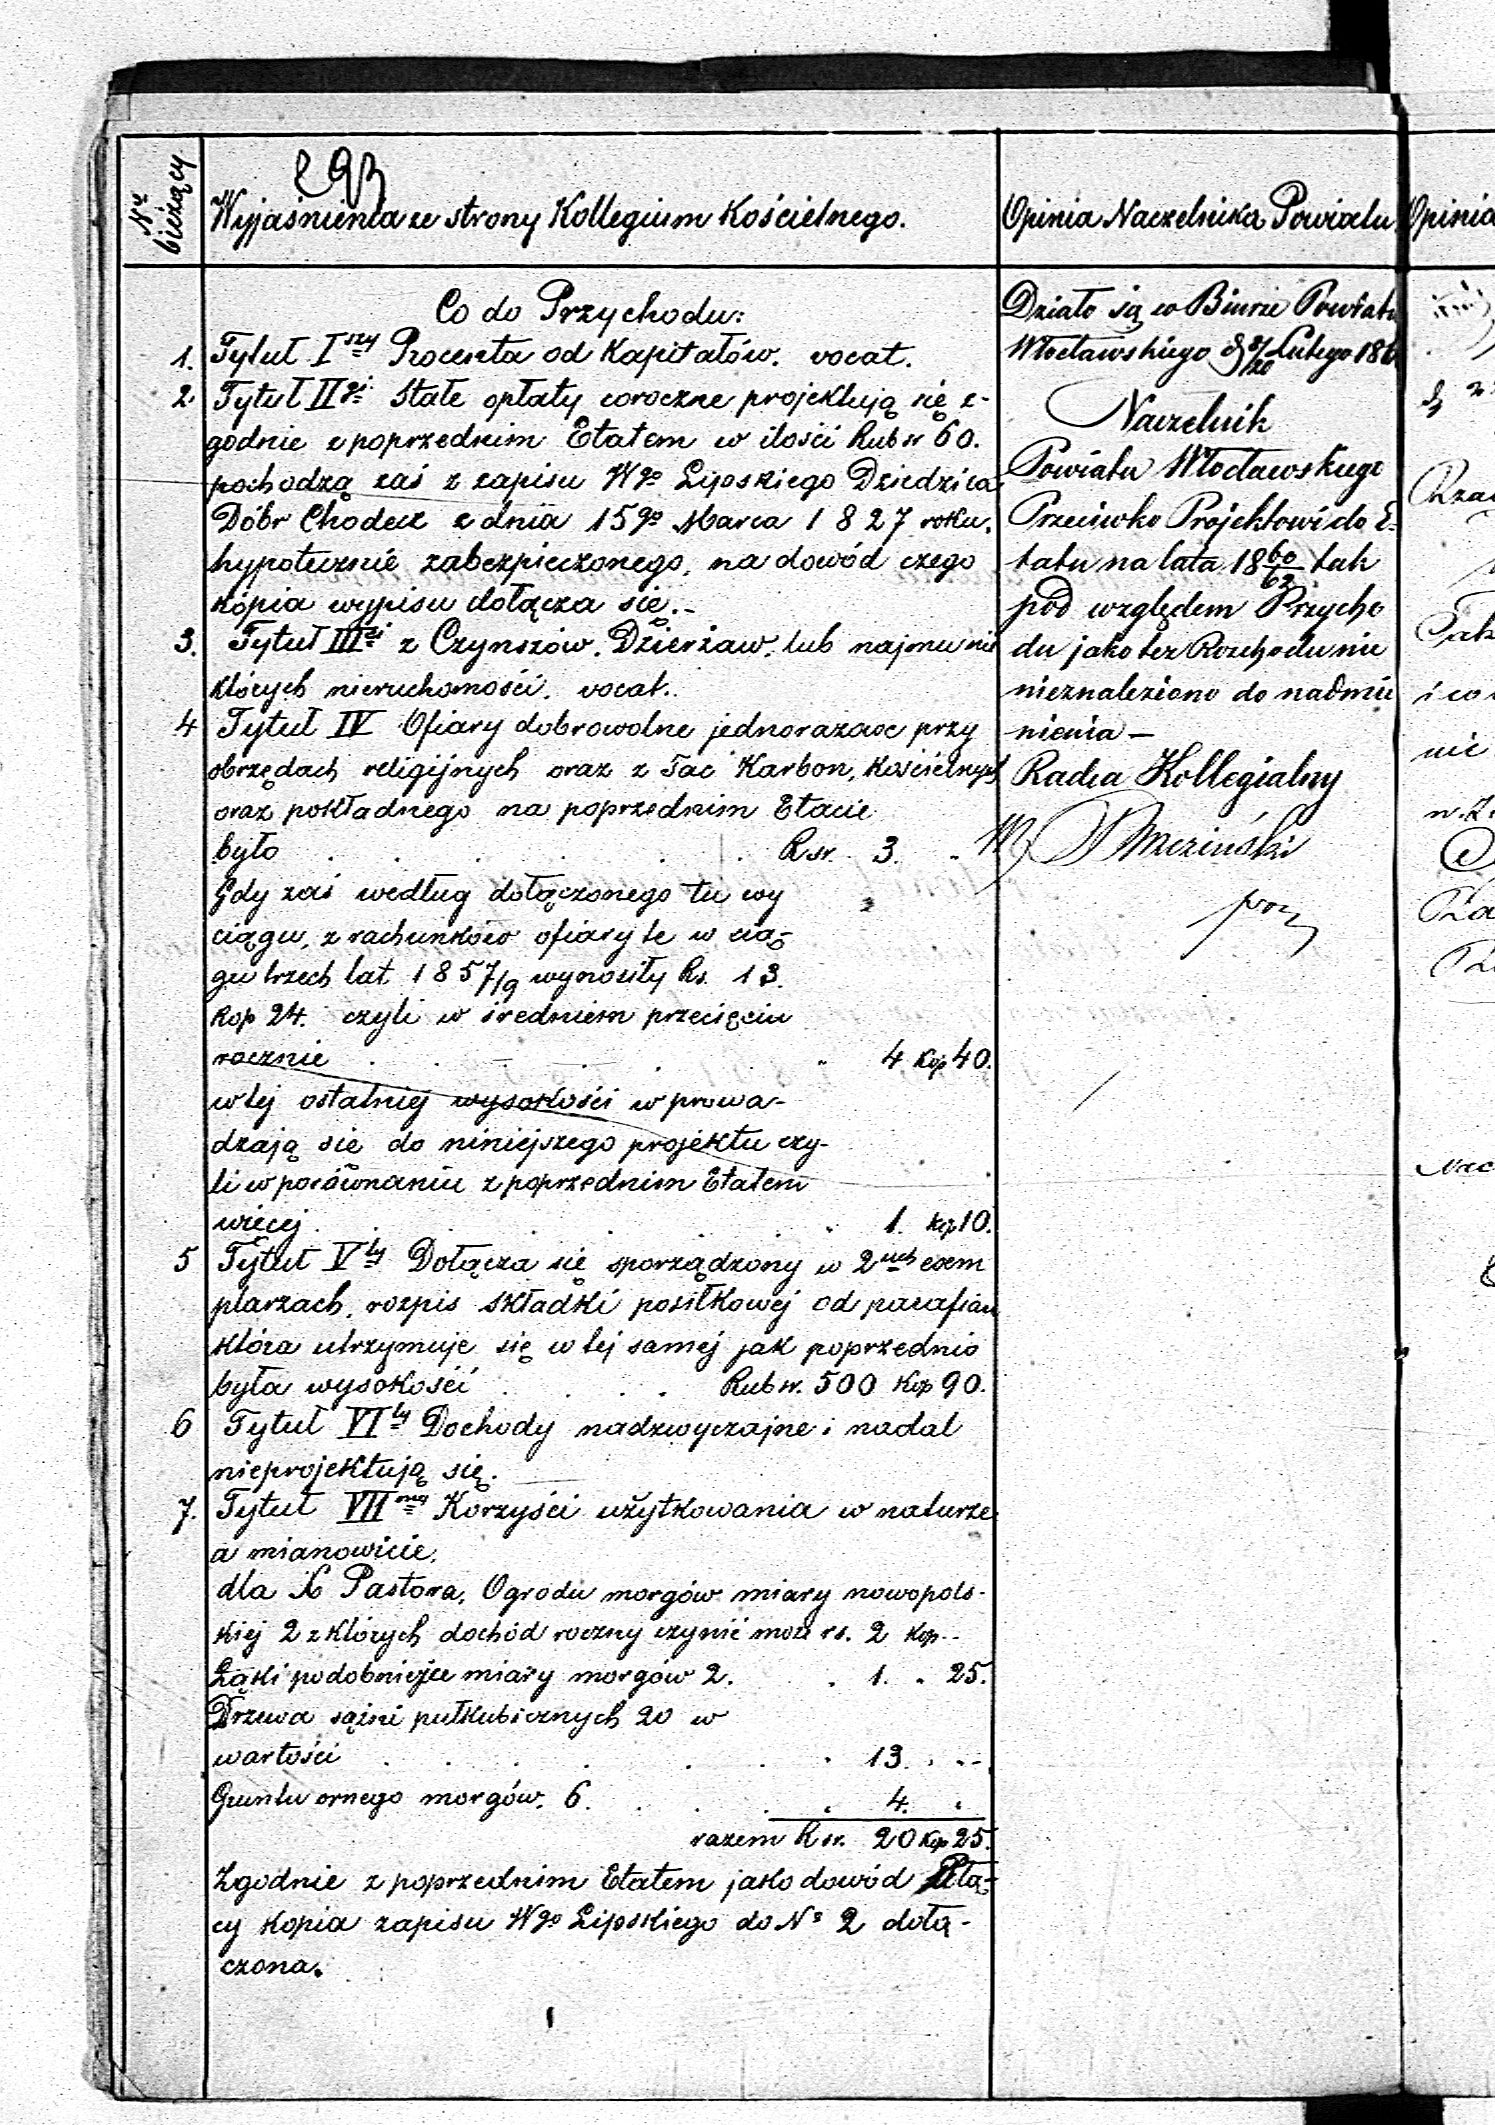 293
Nr bieżący
Wyjaśnienia ze strony Kollegium Kościelnego.
Co do Przychodu:
1. Tytuł I szy Procenta od Kapitałów. vocat.
2 Tytuł II gi Stałe opłaty coroczne projektują się z-
godnie z poprzednim Etatem w ilości Rub sr 60.
pochodzą zaś z zapisu Wgo Lipskiego Dziedzica
Dóbr Chodecz z dnia 15go Marca 1827 roku.
hypotecznie zabezpieczonego, na dowód czego
kópia wypisu dołącza się.-
3. Tytuł III ci z Czynszów. Dzierżaw. lub najmu nie
których nieruchomości. vocat.
4 Tytuł IV Ofiary dobrowolne jednorazowe przy
obrzędach religijnych oraz z Tac Karbon, Kościelnych
oraz pokładnego na poprzednim Etacie
było . . . . . Rsr. 3. "
Gdy zaś według dołączonego tu wy
ciągu, z rachunków ofiary te w cią-
gu trzech lat 1857/9 wynosiły Rs. 13.
Kop 24. czyli w średniem przecięciu
rocznie . . . . . " 4 Kop 40.
w tej ostatniej wysokości wprowa-
dzają się do niniejszego projektu czy-
li w porównaniu z poprzednim Etatem
więcej . . . . . " 1. Kop 10.
5 Tytuł V ty Dołącza się sporządzony w 2uch exem
plarzach, rozpis składki posiłkowej od parafian
która utrzymuje się w tej samej jak poprzednio
była wysokości . . . . Rub sr. 500 Kop 90.
6 Tytuł VI ty Dochody nadzwyczajne i nadal
nieprojektują się.
7. Tytuł VII my Korzyści użytkowania w naturze
a mianowicie,
dla X Pastora, Ogrodu morgów miary nowopols-
kiej 2 z których dochód roczny czynić może rs. 2 Kop--
Łąki podobniejże miary morgów 2. . 1. " 25.
Drzewa sążni pułkubicznych 20 w
wartości . . . . . " 13. " --
Gruntu ornego morgów. 6. . . . " 4. "
razem Rsr. 20 Kop 25.
Zgodnie z poprzednim Etatem jako dowód
cy kopia zapisu Wgo Lipskiego do Nº 2 dołą-
czona.
Opinia Naczelnika Powiatu
Działo się w Biurze Powiatu
Włocławskiego d 8/20 Lutego 18
Naczelnik
Powiatu Włocławskiego
Przeciwko Projektowi do E-
tatu na lata 1860/62 tak
pod względem Przycho
du jako też Rozchodu nic
nieznaleziono do nadmie
nienia —
Radca Kollegialny
Opinia